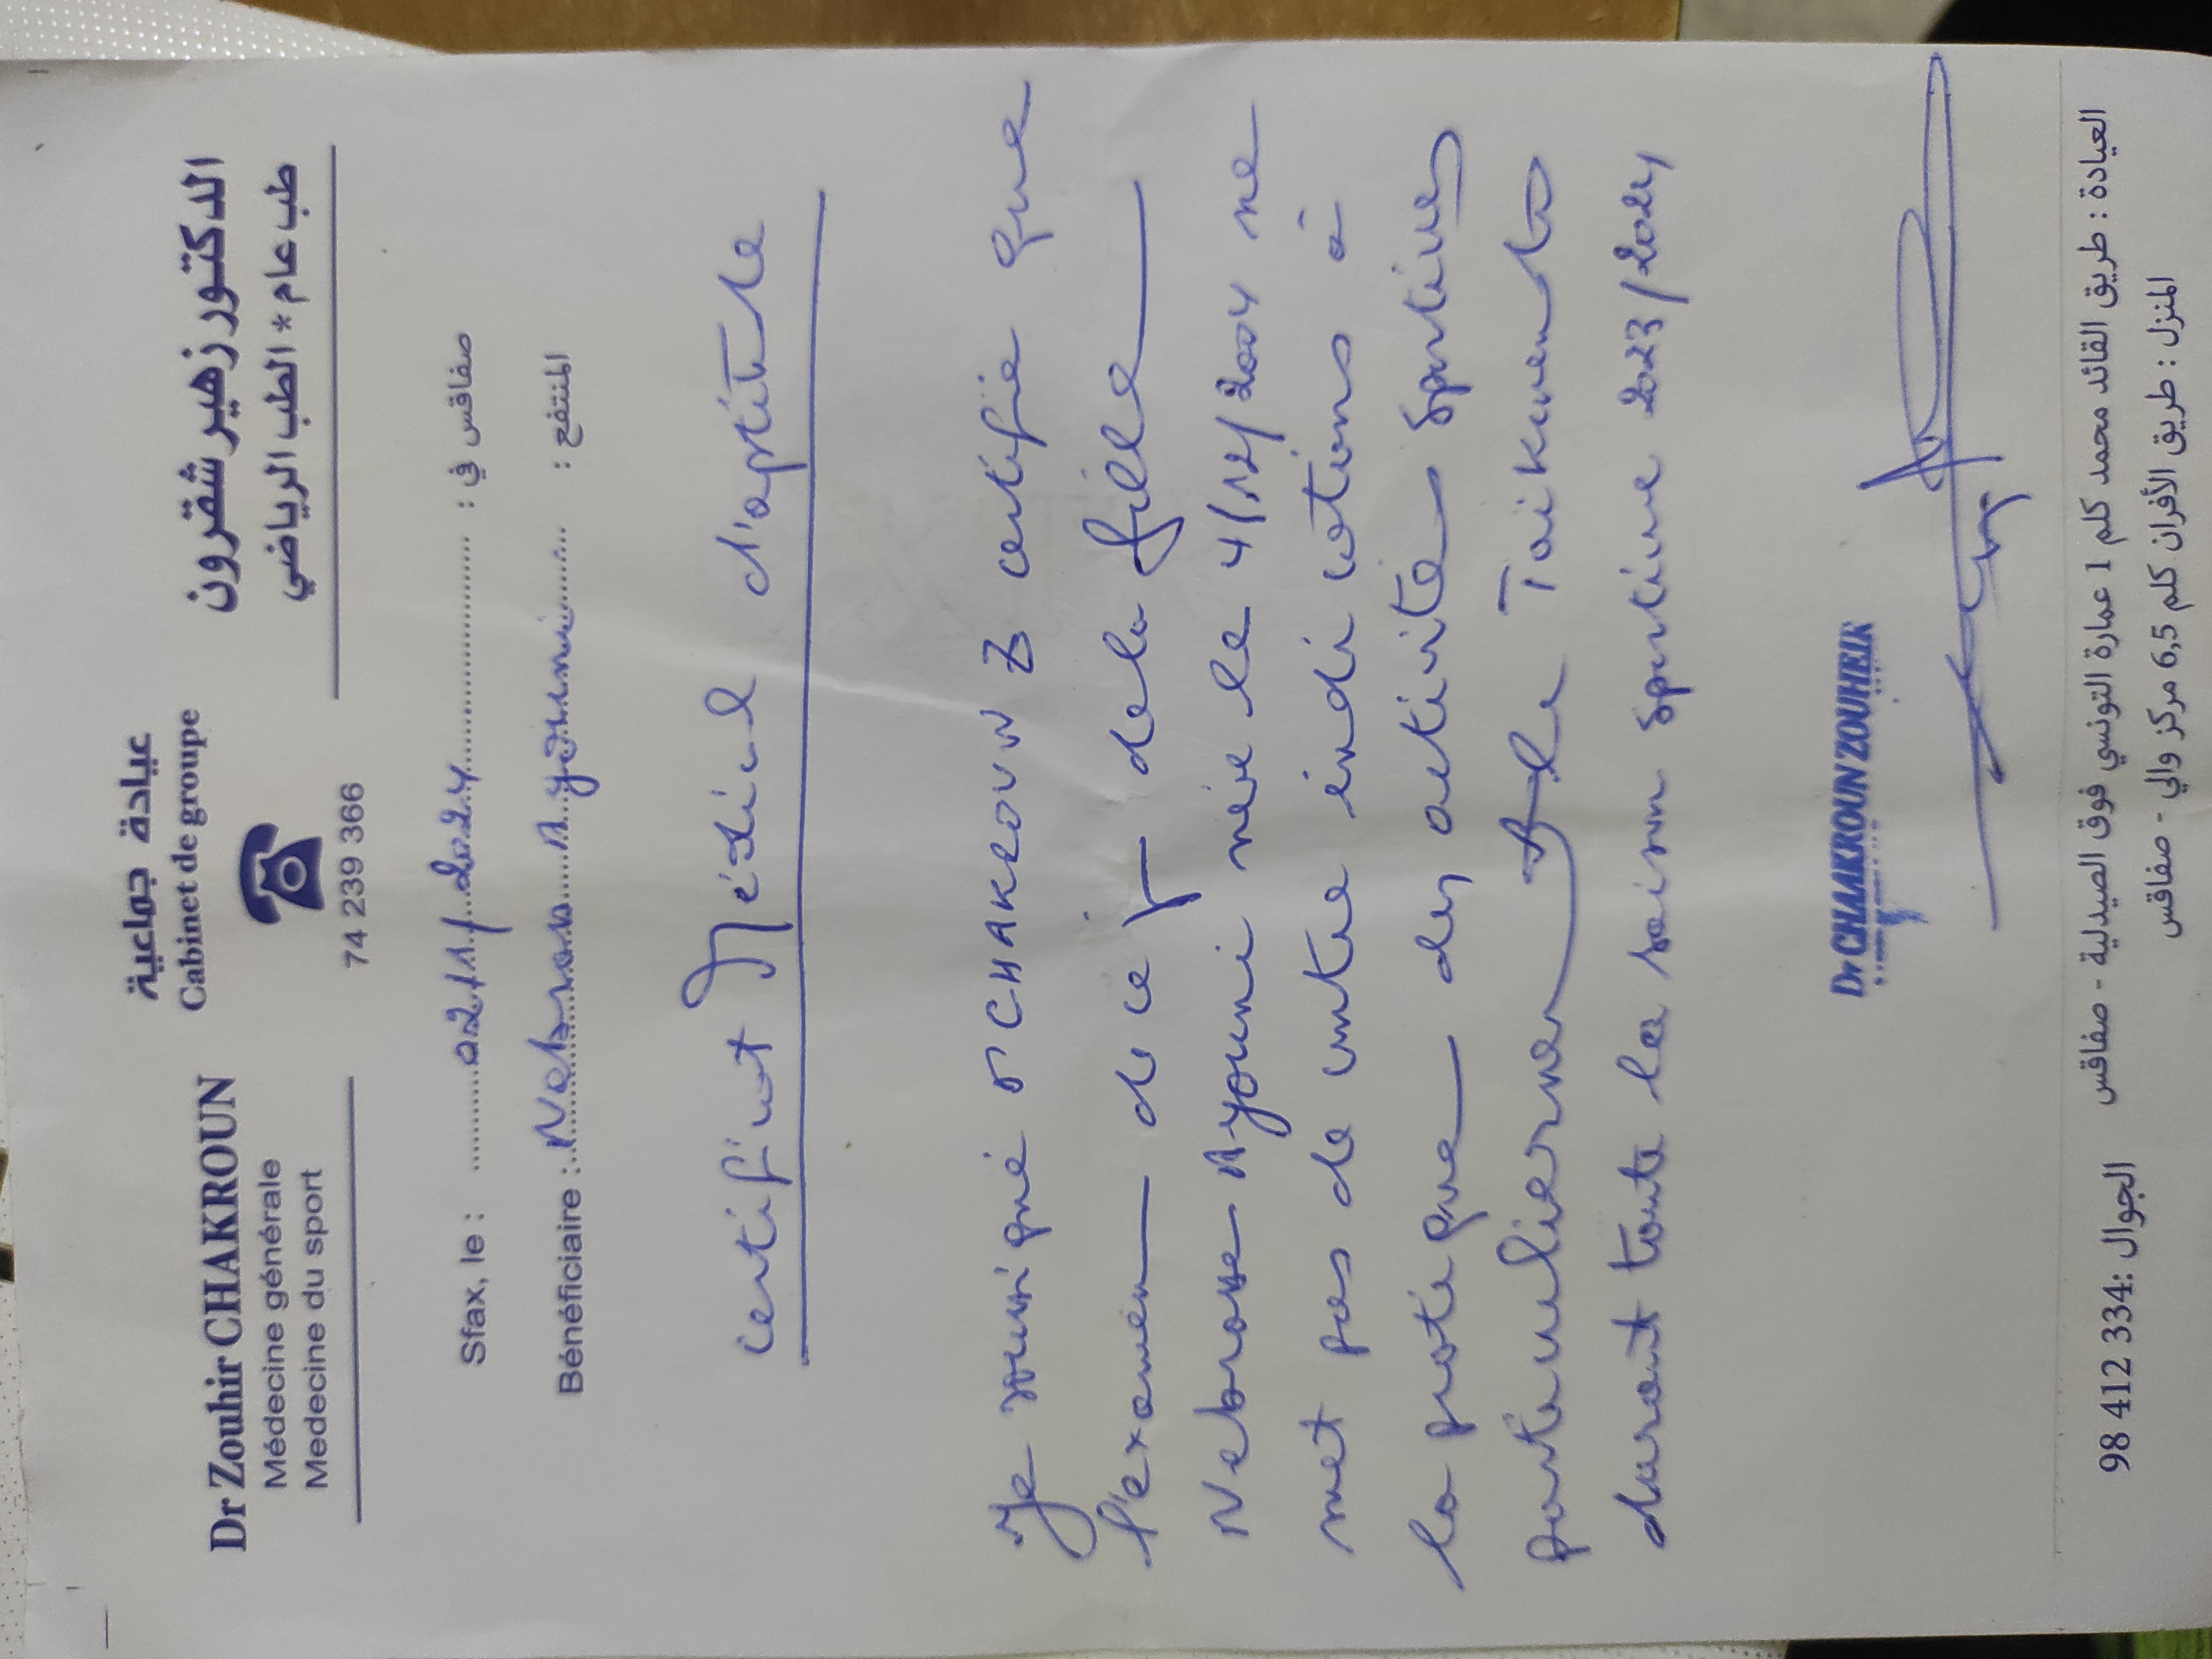 Dr Zouhir CHAKROUN
Médecine générale
Medecine du sport
عيادة جماعية
Cabinet de groupe
74 239 366
الدكتور زهير شقرون
طب عام * الطب الرياضي
Sfax, le : 02/1/2024 صفاقس في :
Bénéficiaire : Nebrasse Ayouni المنتفع :
certificat Médical d'aptitude
Je soussigné Dr CHAKROUN Z certifie que
l'examen de ce jr de la fille
Nebrasse Ayouni née le 4/12/2004 ne
met pas de contre indications à
la pratique des activités sportives
particulièrement le Taikwendo
durant toute la saison sportive 2023/2024
Dr CHAKROUN ZOUHEIR
العيادة : طريق القائد محمد كلم 1 عمارة التونسي فوق الصيدلية - صفاقس الجوال :98 412 334
المنزل : طريق الأفران كلم 6,5 مركز والي - صفاقس